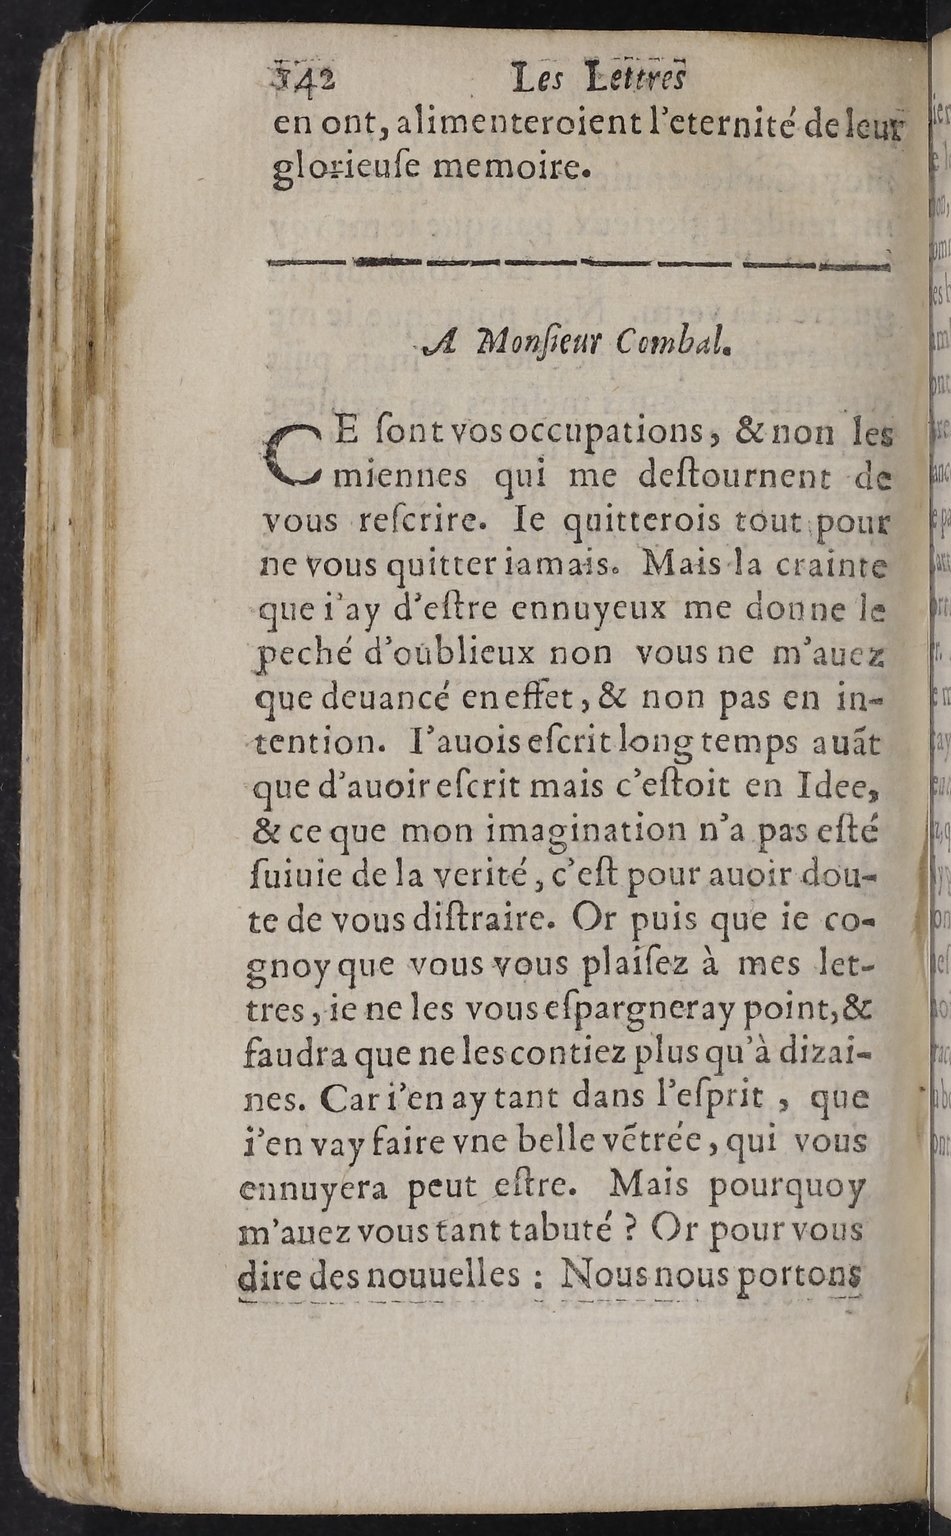 342 Les Lettres
en ont, alimenteroient l'eternité de leur
glorieuſe memoire.
A Monſieur Combal.
CE ſont vos occupations, & non les
miennes qui me deſtournent de
vous reſcrire. Ie quitterois tout pour
ne vous quitter iamais. Mais la crainte
que i'ay d'eſtre ennuyeux me donne le
peché d'oublieux non vous ne m'auez
que deuancé en effet, & non pas en in-
tention. I'auois eſcrit long temps auãt
que d'auoir eſcrit mais c'eſtoit en Idee,
& ce que mon imagination n'a pas eſté
ſuiuie de la verité, c'eſt pour auoir dou-
te de vous diſtraire. Or puis que ie co-
gnoy que vous vous plaiſez à mes let-
tres, ie ne les vous eſpargneray point, &
faudra que ne les contiez plus qu'à dizai-
nes. Car i'en ay tant dans l'eſprit, que
i'en vay faire vne belle vẽtrée, qui vous
ennuyera peut eſtre. Mais pourquoy
m'auez vous tant tabuté ? Or pour vous
dire des nouuelles : Nous nous portons